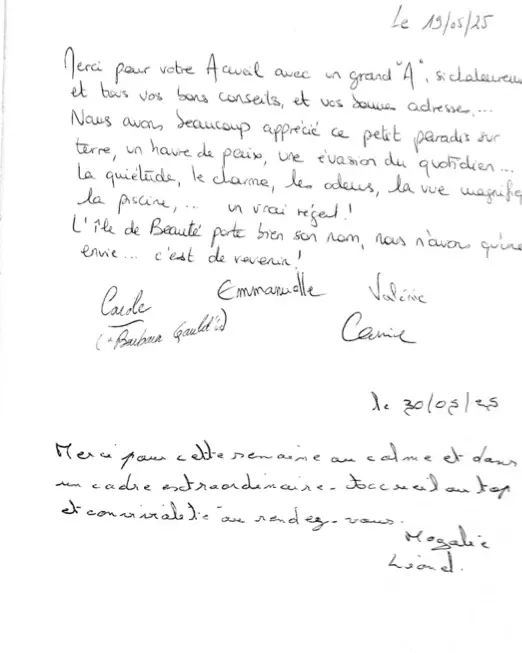 Le 19/05/25
Merci pour votre Accueil avec un grand "A", si chaleureux
et tous vos bons conseils, et vos bonnes adresses,...
Nous avons beaucoup apprécié ce petit paradis sur
terre, un havre de paix, une évasion du quotidien...
La quiétude, le charme, les odeurs, la vue magnifiq
la piscine,... un vrai régal!
L'île de Beauté porte bien son nom, nous n'avons qu'une
envie... c'est de revenir!
Carole Emmanuelle Valérie
Barbara
le 30/05/25
Merci pour cette semaine au calme et dans
un cadre extraordinaire - accueil au top
et convivialité au rendez-vous.
Magalie
Lionel.